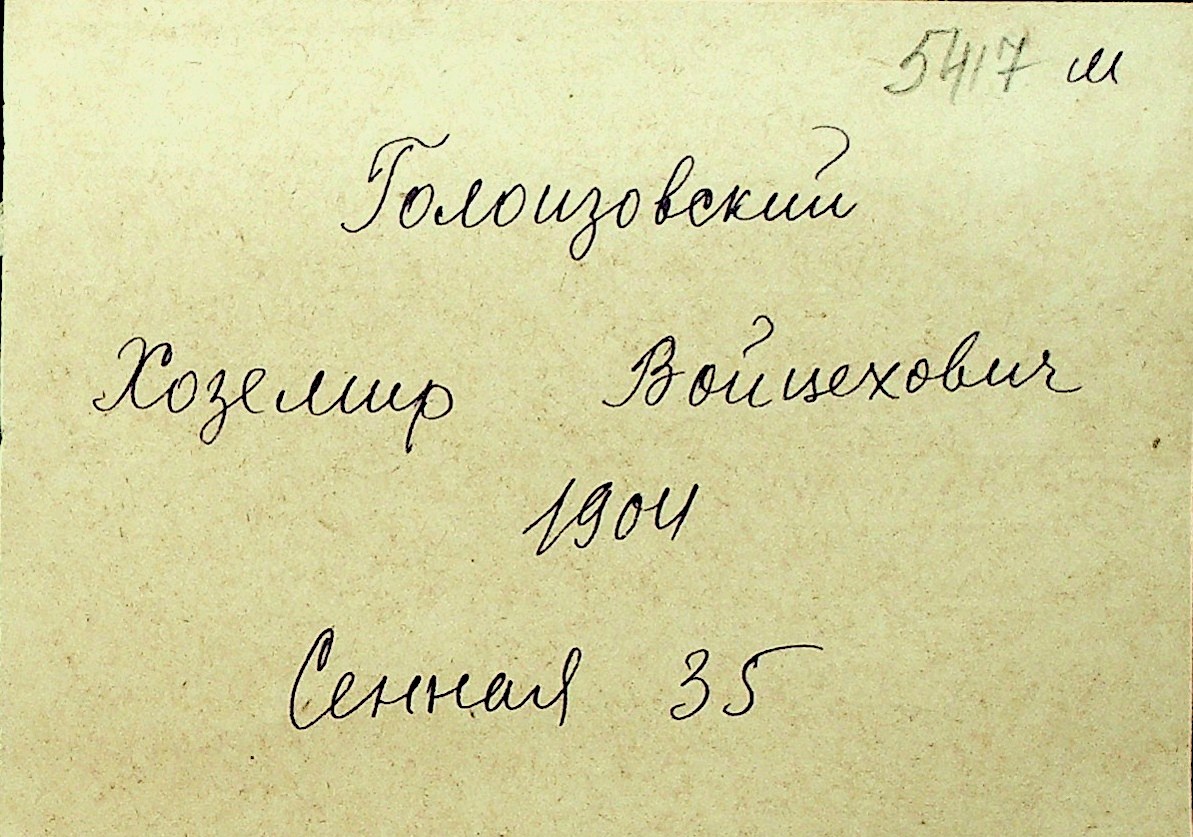 5417 м
Голоизовский
Хоземир Войцехович
1904
Сенная 35